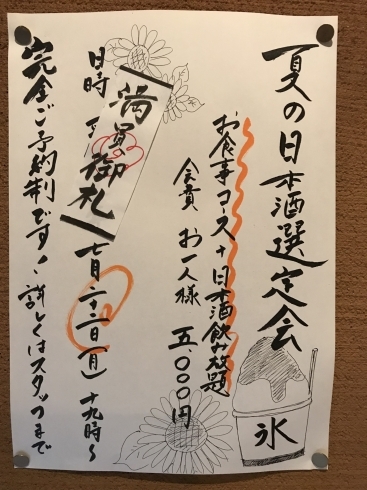 夏の日本酒選定会
お食事コース+日本酒飲み放題
会費 お一人様 五,000円
満員御札
日時 七月二十二日(月) 十九時~
完全ご予約制です! 詳しくはスタッフまで
氷